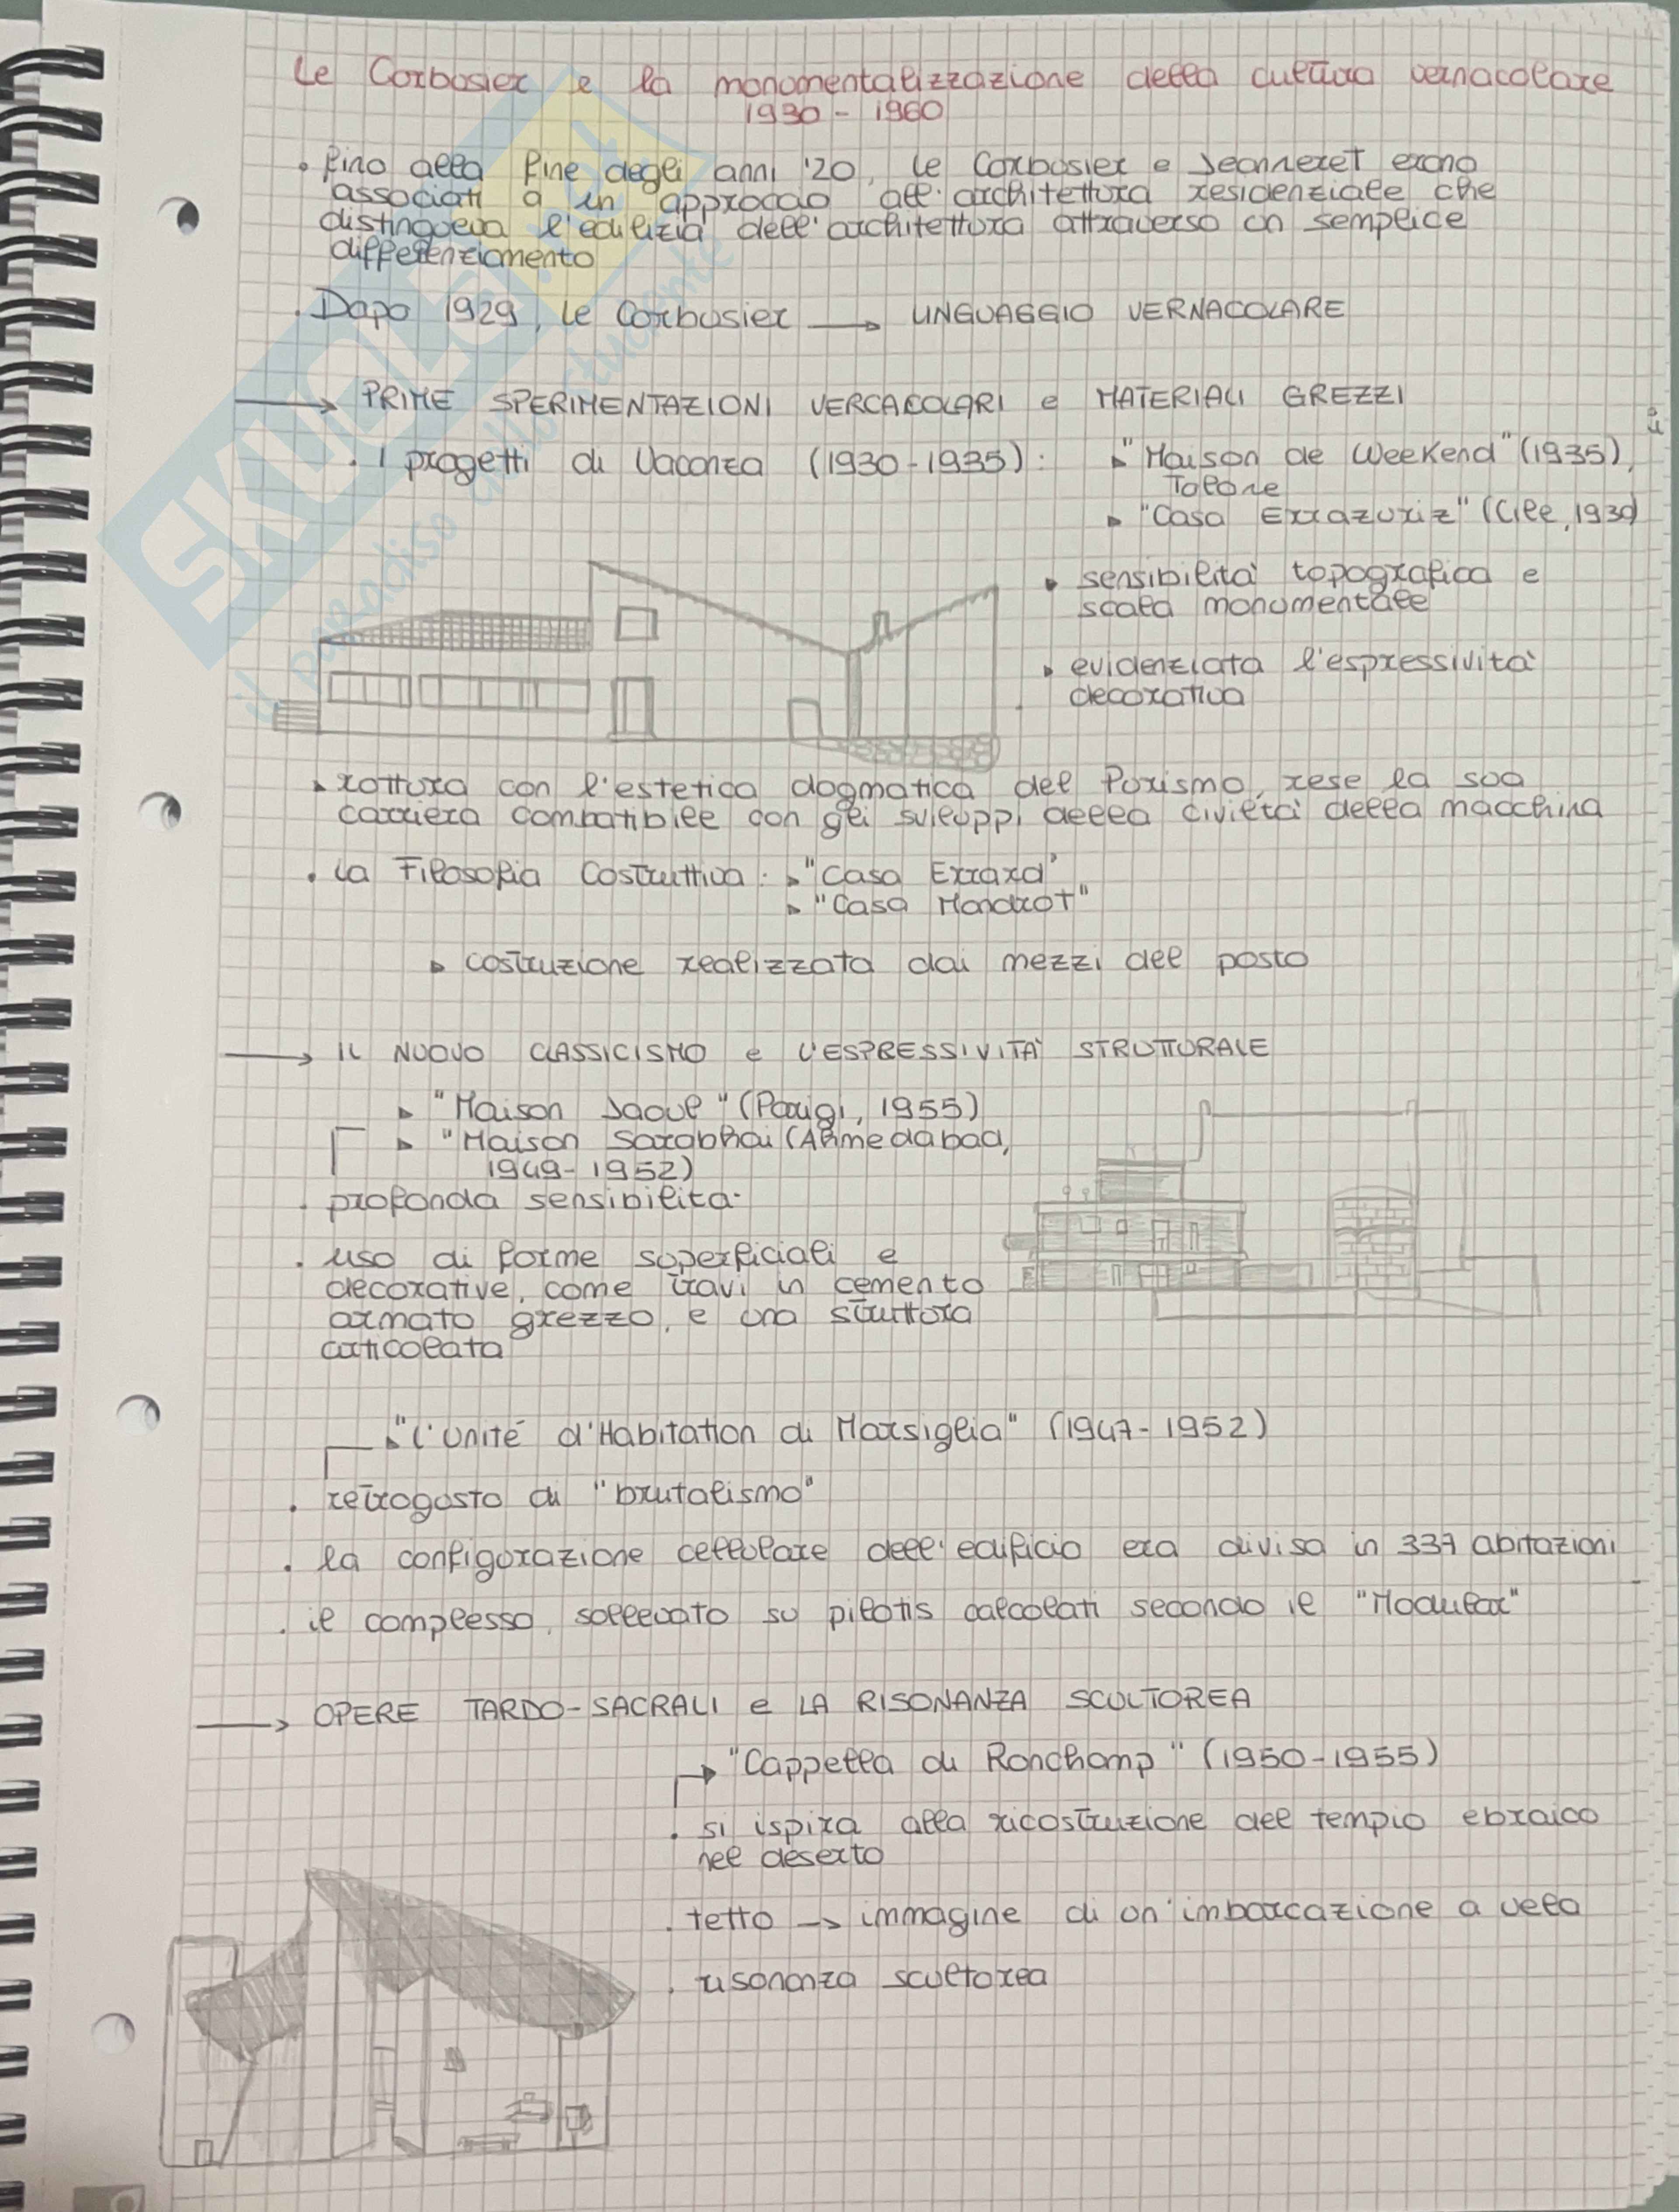 Le Corbusier e la monumentalizzazione della cultura vernacolare
1930 - 1960
• fino alla fine degli anni '20, Le Corbusier e Jeanneret erano
associati a un approccio all'architettura residenziale che
distingueva l'edilizia dall'architettura attraverso un semplice
differenziamento
• Dopo 1929, Le Corbusier → LINGUAGGIO VERNACOLARE
→ PRIME SPERIMENTAZIONI VERCACOLARI e MATERIALI GREZZI
• I progetti di Vacanza (1930-1935): ▸ "Maison de Weekend" (1935),
Tolone
▸ "Casa Errazuriz" (Cile, 1930)
• sensibilità topografica e
scala monumentale
• evidenziata l'espressività
decorativa
▸ rottura con l'estetica dogmatica del Purismo, rese la sua
carriera compatibile con gli sviluppi della civiltà della macchina
• la Filosofia Costruttiva: ▸ "Casa Errard"
▸ "Casa Mandrot"
▸ costruzione realizzata dai mezzi del posto
→ IL NUOVO CLASSICISMO e L'ESPRESSIVITÀ STRUTTURALE
▸ "Maison Jaoul" (Parigi, 1955)
▸ "Maison Sarabhai (Ahmedabad,
1949-1952)
• profonda sensibilità
• uso di forme superficiali e
decorative, come travi in cemento
armato grezzo, e una struttura
articolata
▸ "L'Unité d'Habitation di Marsiglia" (1947-1952)
• retrogusto di "brutalismo"
• la configurazione cellulare dell'edificio era divisa in 337 abitazioni
• il complesso, sollevato su pilotis calcolati secondo il "Modular"
→ OPERE TARDO-SACRALI e LA RISONANZA SCULTOREA
→ "Cappella di Ronchamp" (1950-1955)
• si ispira alla ricostruzione del tempio ebraico
nel deserto
• tetto → immagine di un'imbarcazione a vela
• risonanza scultorea
SKUOLA.net
il paradiso dello studente